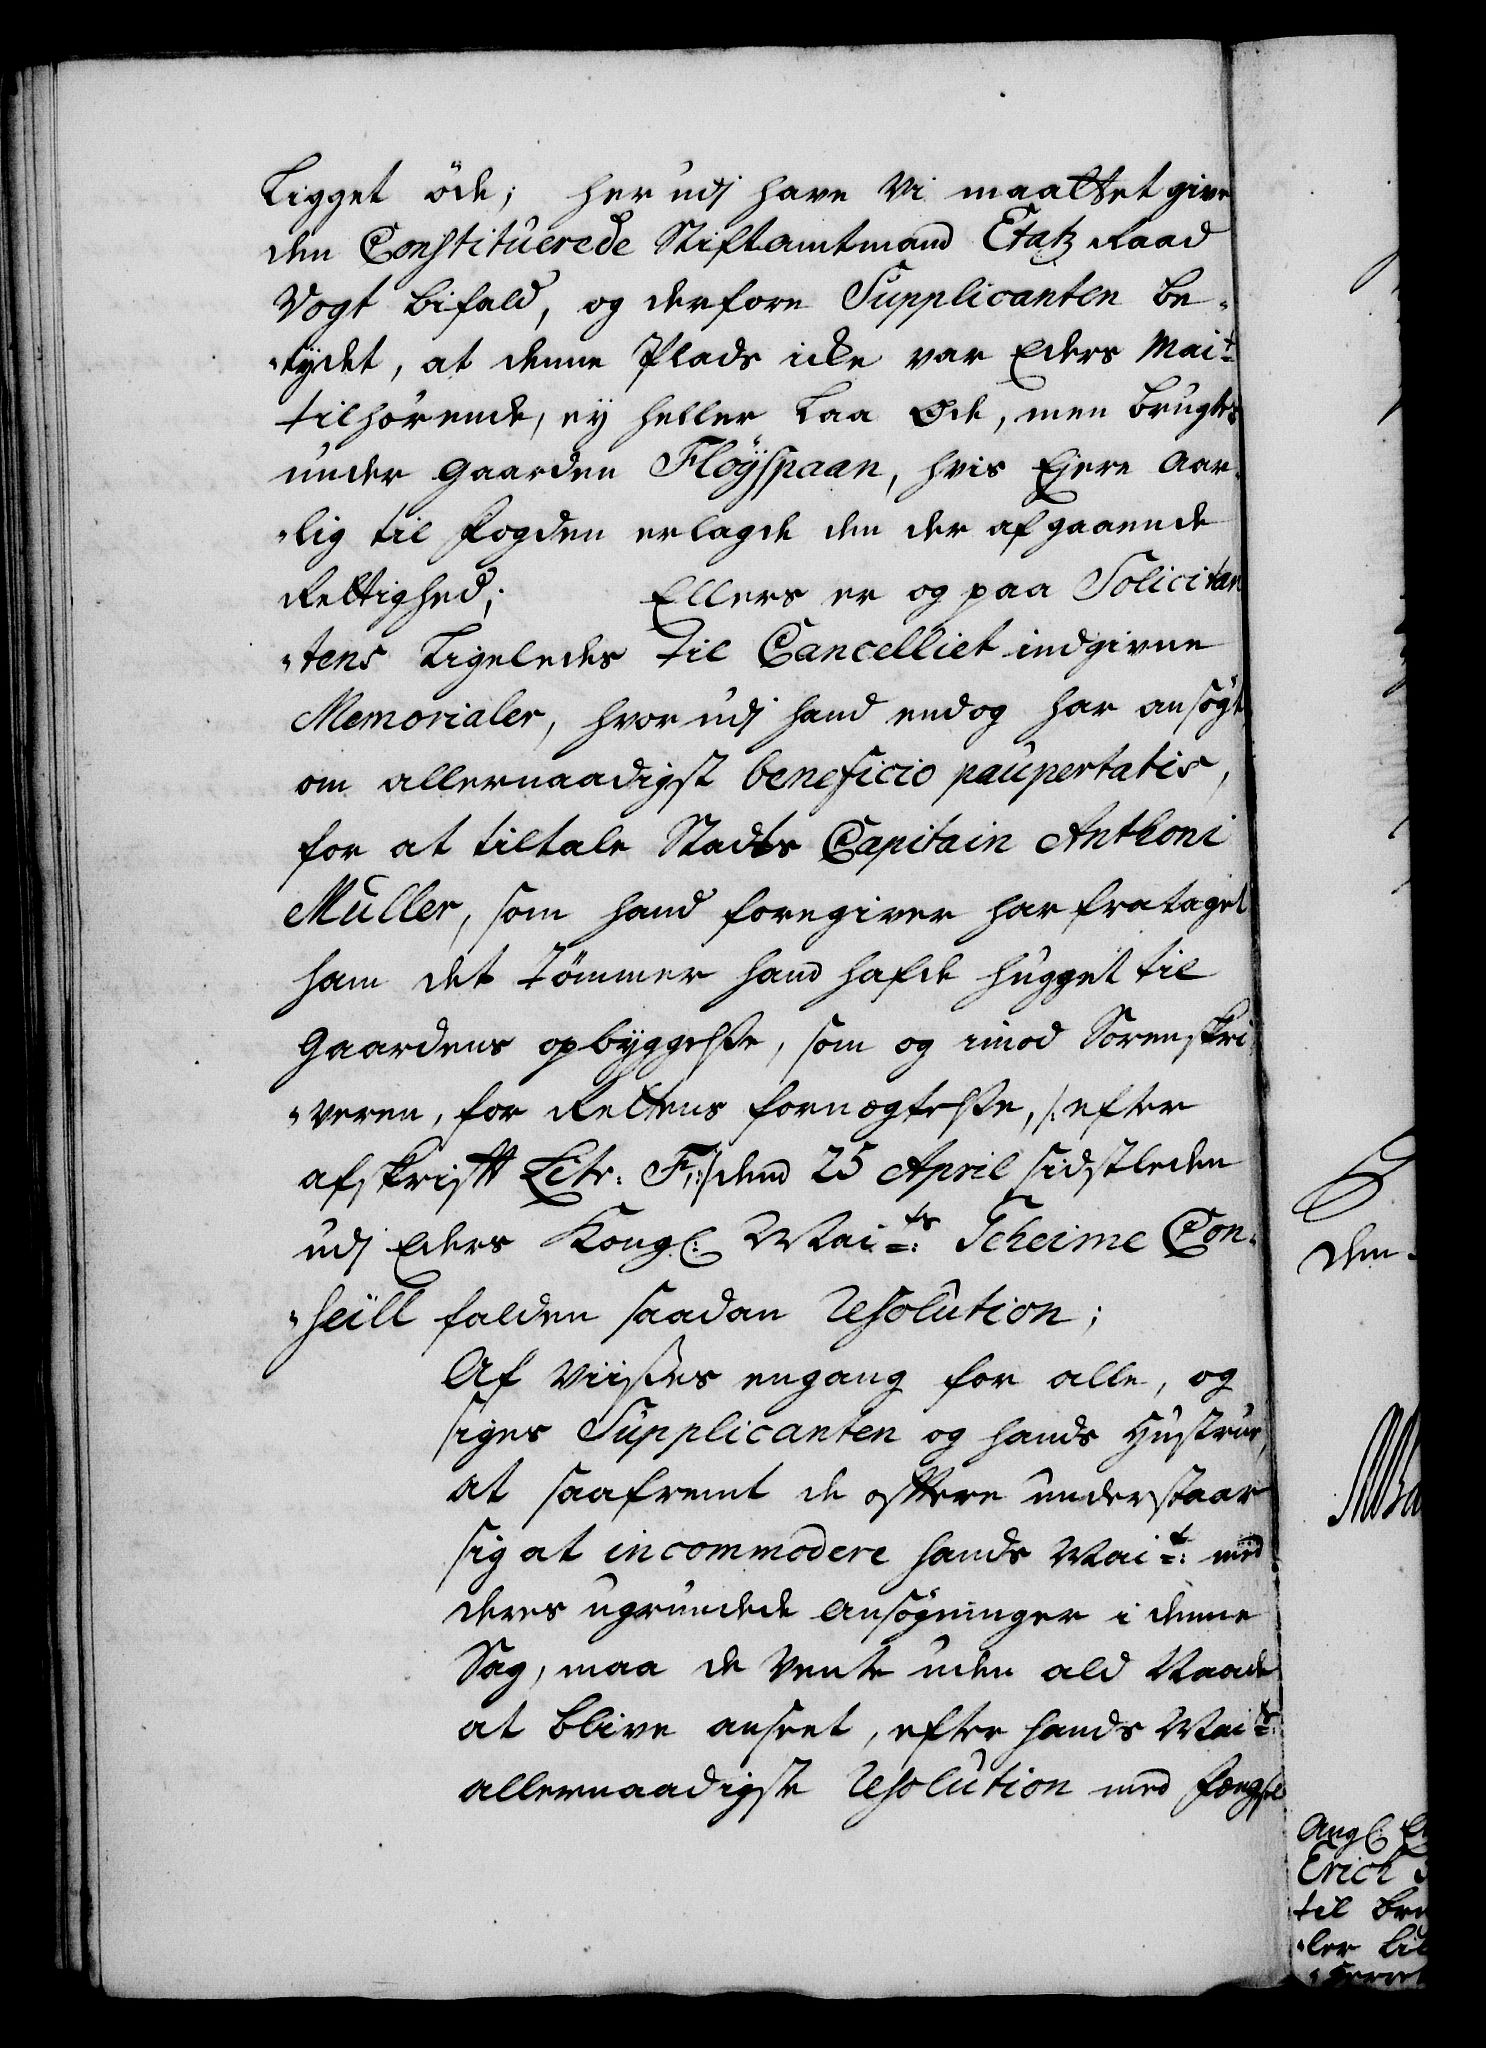 Ligget øde; her udj have Vi maattet give
den Constituerede Stiftamtmand Etatz Raad
Vogt bifald, og derfore Supplicanten be-
-tydet, at denne Plads icke var Eders Mait:
tilhørende, ey heller Laa Øde, men brugtes
under Gaarden Fløyspaan, hvis Ejere Aar-
-lig til fogden erlagde den der afgaaende
Rettighed; Ellers er og paa Solicitan
-tens Ligeledes til Cancelliet indgivne
Memorialer, hvorudj hand endog har ansøgt
om allernaadigst beneficio paupertatis,
for at tiltale Stadts Capitain Anthoni
Müller, som hand foregiver har frataget
ham det Tømmer hand hafde hugget til
Gaardens opbyggelse, som og imod Sorenskri
-veren, for Rettens fornægtelse, /: efter
afskrifft Litr: F, :/ dend 25 April sidstleden
udj Eders Kongl: Maits: Geheime Con-
-seill falden saadan Resolution;
Af Viises engang for alle, og
siges Supplicanten og hands Hustrue,
at saafremt de offtere understaar
sig at incommodere hands Mait: med
deres ugrundede Ansøgninger i denne
Sag, maa de vente uden ald Naade
at blive anseet, efter hands Maits:
allernaadigste Resolution med fængsel
den-
Angl:
Erich
til
-ler